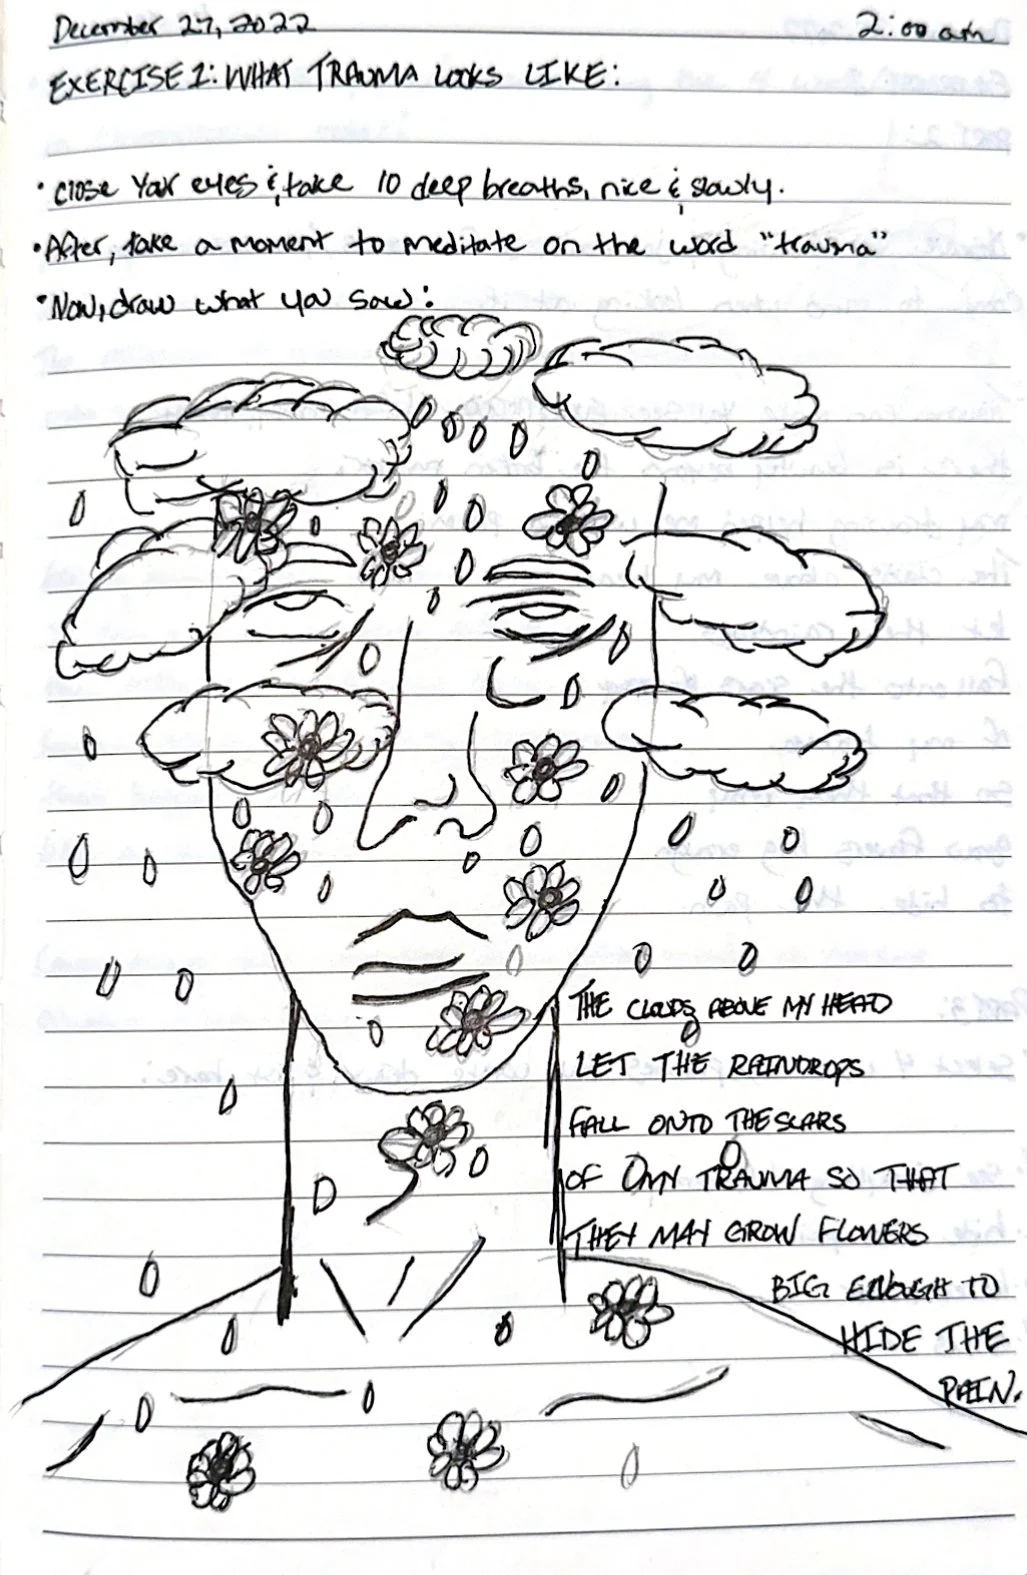 December 27, 2022 2:00 am
EXERCISE 1: WHAT TRAUMA LOOKS LIKE:
• Close your eyes & take 10 deep breaths, nice & slowly.
• After, take a moment to meditate on the word "trauma"
• Now, draw what you saw:
THE CLOUDS ABOVE MY HEAD
LET THE RAINDROPS
FALL ONTO THE SCARS
OF MY TRAUMA SO THAT
THEY MAY GROW FLOWERS
BIG ENOUGH TO
HIDE THE
PAIN.